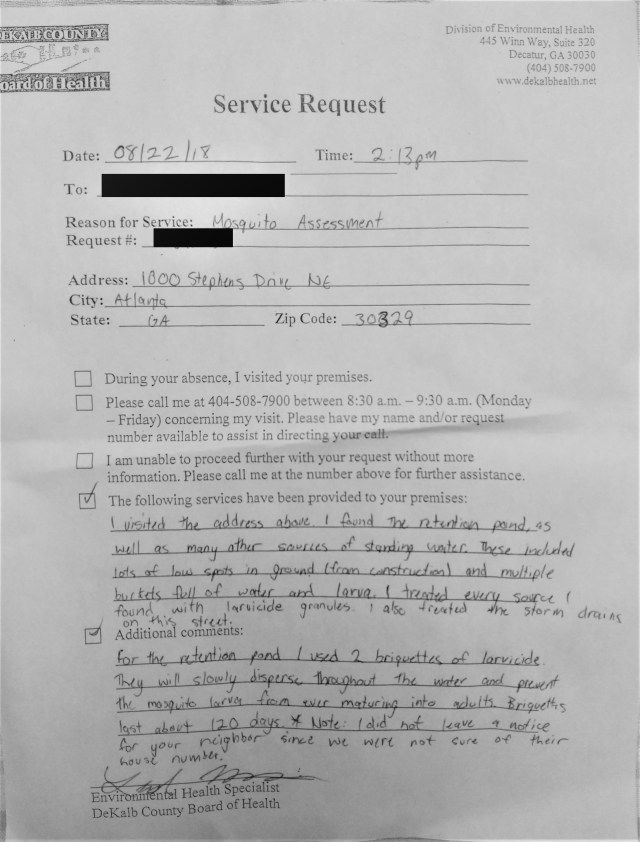 DEKALB COUNTY
Board of Health
Division of Environmental Health
445 Winn Way, Suite 320
Decatur, GA 30030
(404) 508-7900
www.dekalbhealth.net
Service Request
Date: 08/22/18 Time: 2:13pm
To:
Reason for Service: Mosquito Assessment
Request #:
Address: 1800 Stephens Drive NE
City: Atlanta
State: GA Zip Code: 30329
During your absence, I visited your premises.
Please call me at 404-508-7900 between 8:30 a.m. – 9:30 a.m. (Monday
– Friday) concerning my visit. Please have my name and/or request
number available to assist in directing your call.
I am unable to proceed further with your request without more
information. Please call me at the number above for further assistance.
The following services have been provided to your premises:
I visited the address above. I found the retention pond, as
well as many other sources of standing water. These included
lots of low spots in ground (from construction) and multiple
buckets full of water and larva. I treated every source I
found with larvicide granules. I also treated the storm drains
on this street.
Additional comments:
For the retention pond I used 2 briquettes of larvicide.
They will slowly disperse throughout the water and prevent
the mosquito larva from ever maturing into adults. Briquettes
last about 120 days. * Note: I did not leave a notice
for your neighbor since we were not sure of their
house number.
Environmental Health Specialist
DeKalb County Board of Health